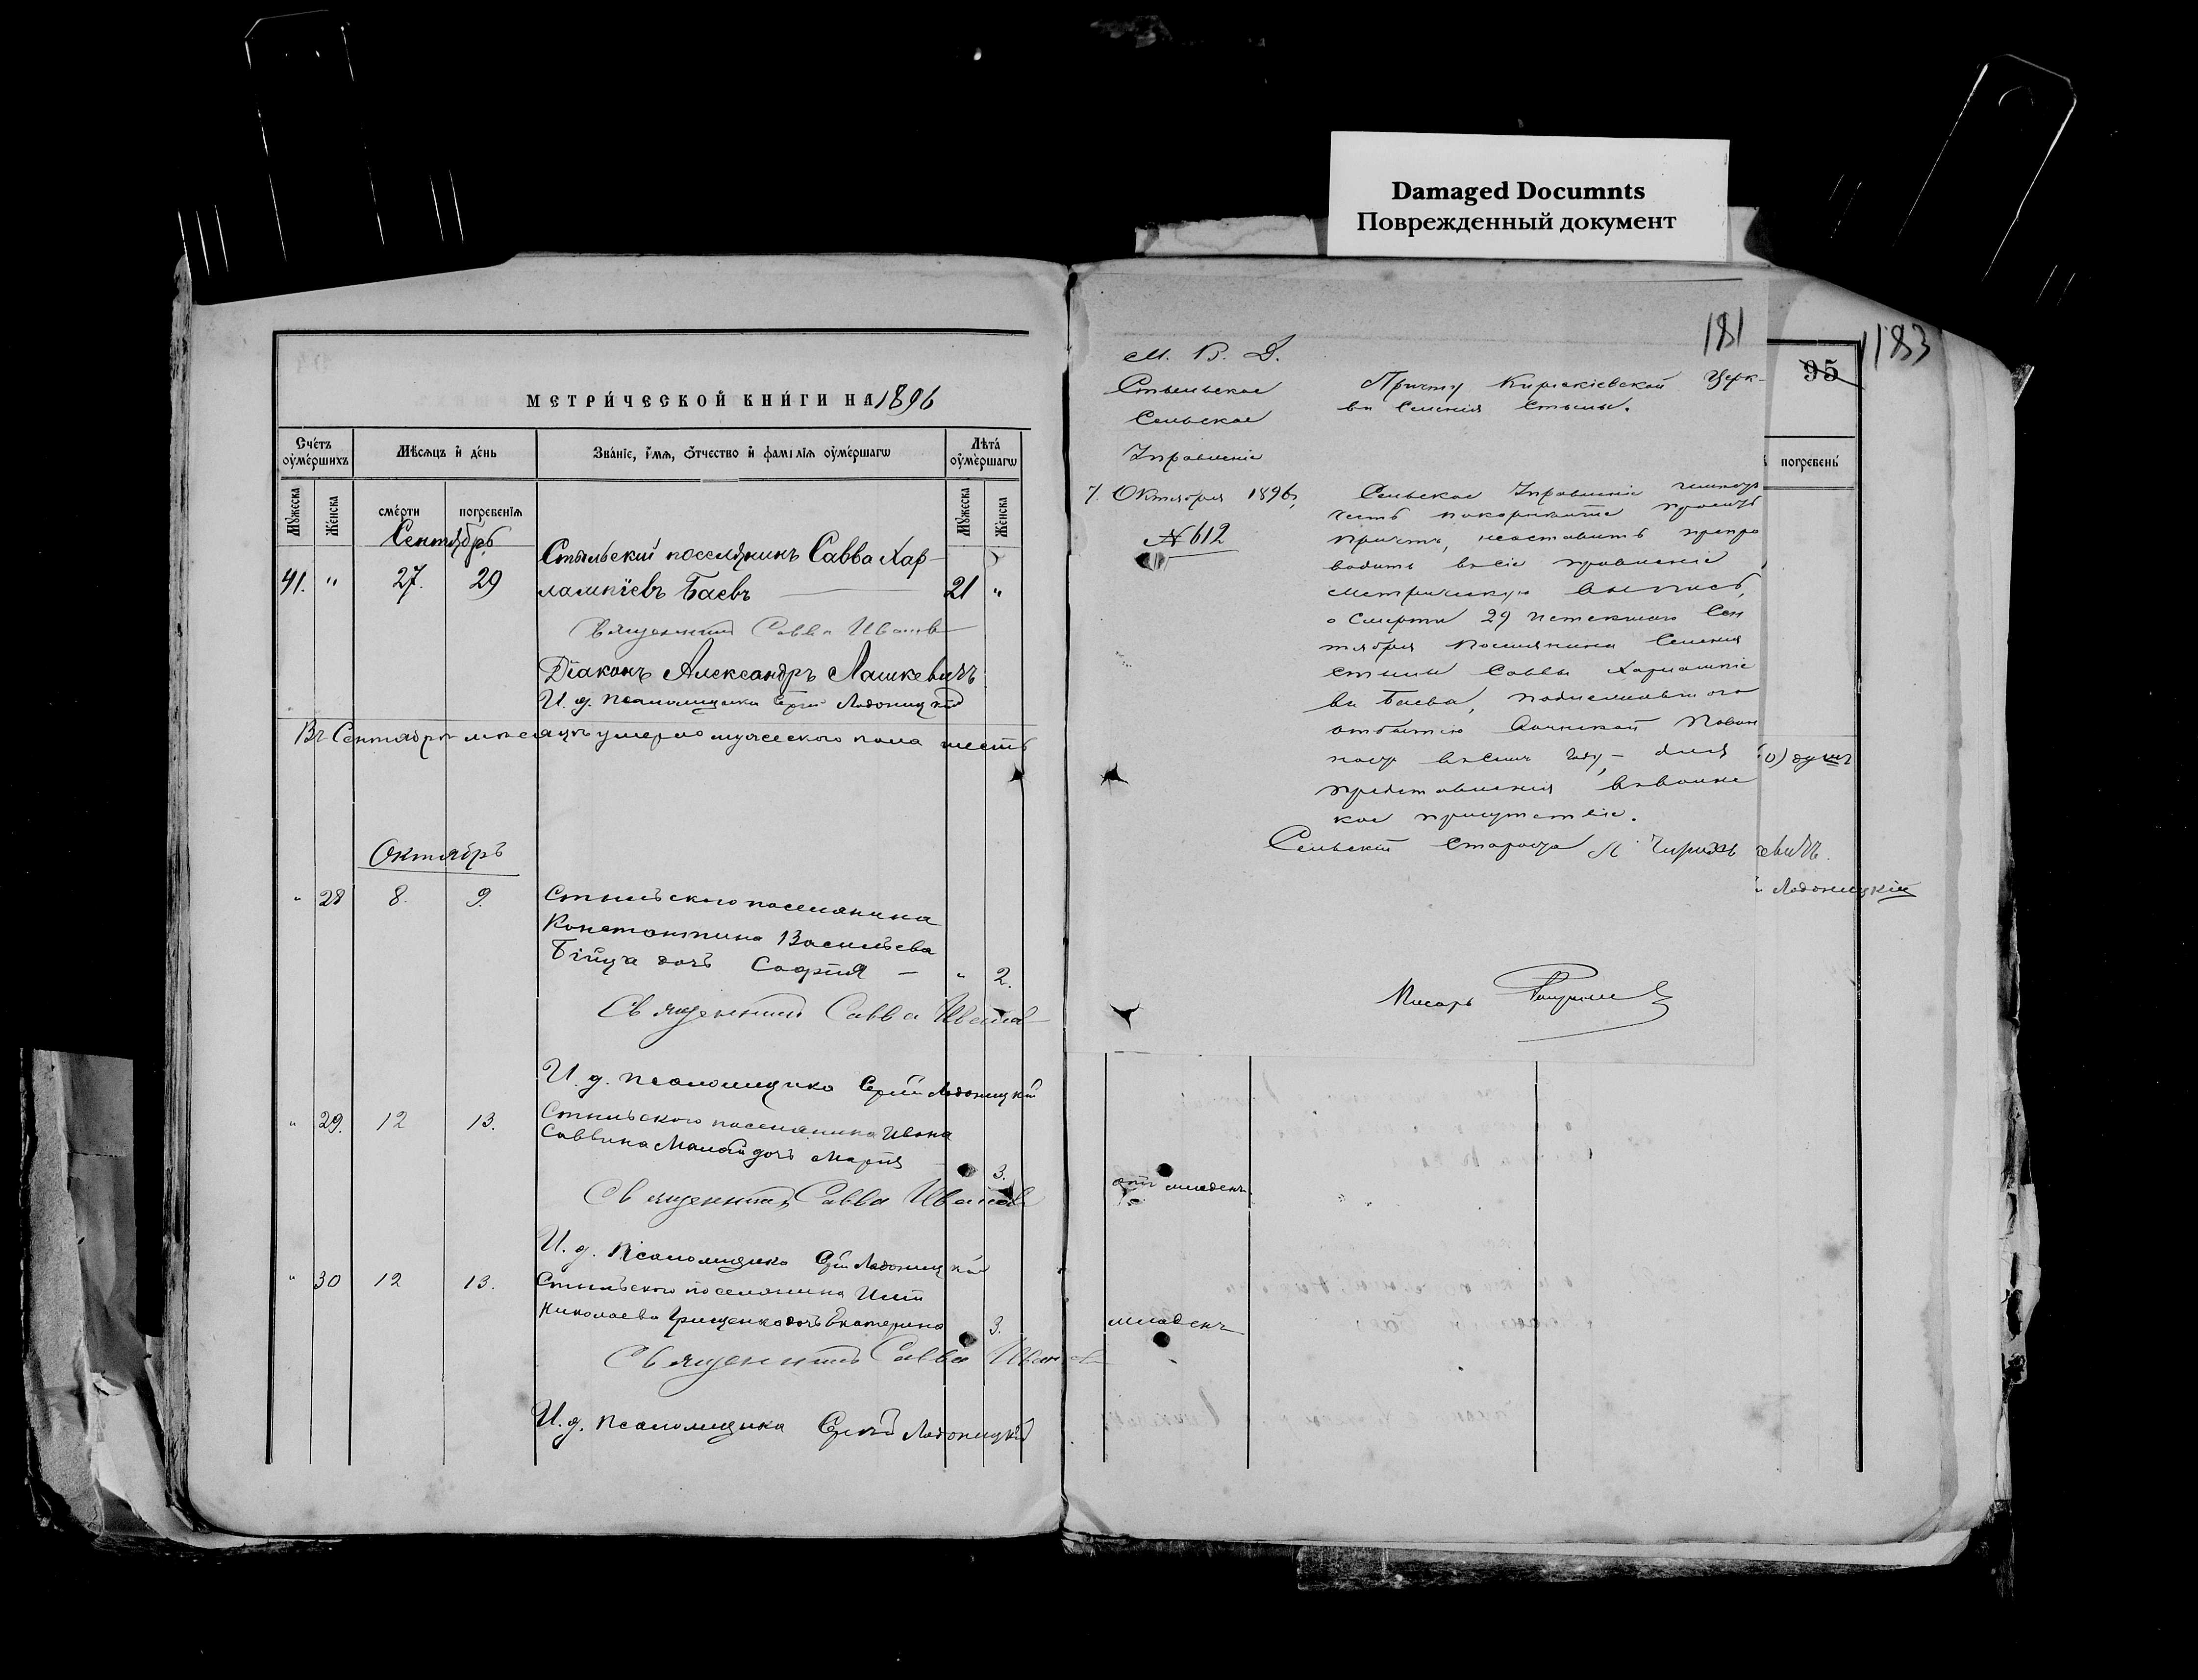 Damaged Documnts
Поврежденный документ
МЕТРИ́ЧЕСКОЙ КНИ́ГИ НА 1896
Сче́тъ оуме́ршихъ
Мѣсяцъ и де́нь
Зва́нїе, и҆́мѧ, ѻ҆́тчество и фамі́лїѧ оуме́ршагѡ
Лѣта̀ оуме́ршагѡ
Мꙋжеска
Же́нска
сме́рти
погребе́нїѧ
Мꙋжеска
Же́нска
Сентябрь
41. " 27. 29 Стыльскій поселянинъ Савва Хар-
лампіевъ Баевъ — 21 "
Священникъ Савва Иванов
Діаконъ Александръ Лашкевичъ
И. д. псаломщика Сергій Лодоницкій
Въ Сентябрѣ мѣсяцѣ умерло мужескаго пола шесть
Октябрь
" 28 8. 9. Стыльскаго поселянина
Константина Васильева
дочь Софія — " 2.
Священникъ Савва Иванов
И. д. псаломщика Сергій Лодоницкій
" 29. 12 13. Стыльскаго поселянина Ивана
Саввина дочь Марія 3.
Священникъ Савва Иванов
И. д. псаломщика Сергій Лодоницкій
" 30 12 13. Стыльскаго поселянина
Николаева Грищенко дочь Екатерина 3.
Священникъ Савва Иванов
И. д. псаломщика Сергій Лодоницкій
181
183
95
погребень
М. В. Д.
Стыльское
Сельское
Управленіе
7. Октября 1896 г.
№ 612
Причту Киріакіевской Церк-
ви Селенія Стылы.
Сельское Управленіе имѣетъ
честь покорнѣйше проситъ
причтъ, неоставить препро
водить въ сіе правленіе
метрическую выпись,
о смерти 29 истекшаго Сен
тября поселянина Селенія
Стылы Саввы Харлампіе
ва Баева, подлежавшаго
отбытію Воинской Повин
ности въ семъ году, — для
представленія въ воинс
кое присутствіе.
Сельскій Староста
Писарь
душъ
евичъ.
Лодоницкій
младенч.
младенч